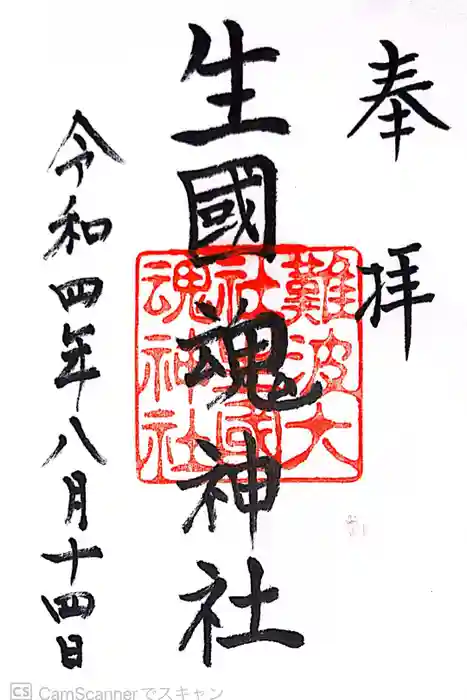 奉拝
生國魂神社
難波大
社生國
魂神社
令和四年八月十四日
CS CamScannerでスキャン